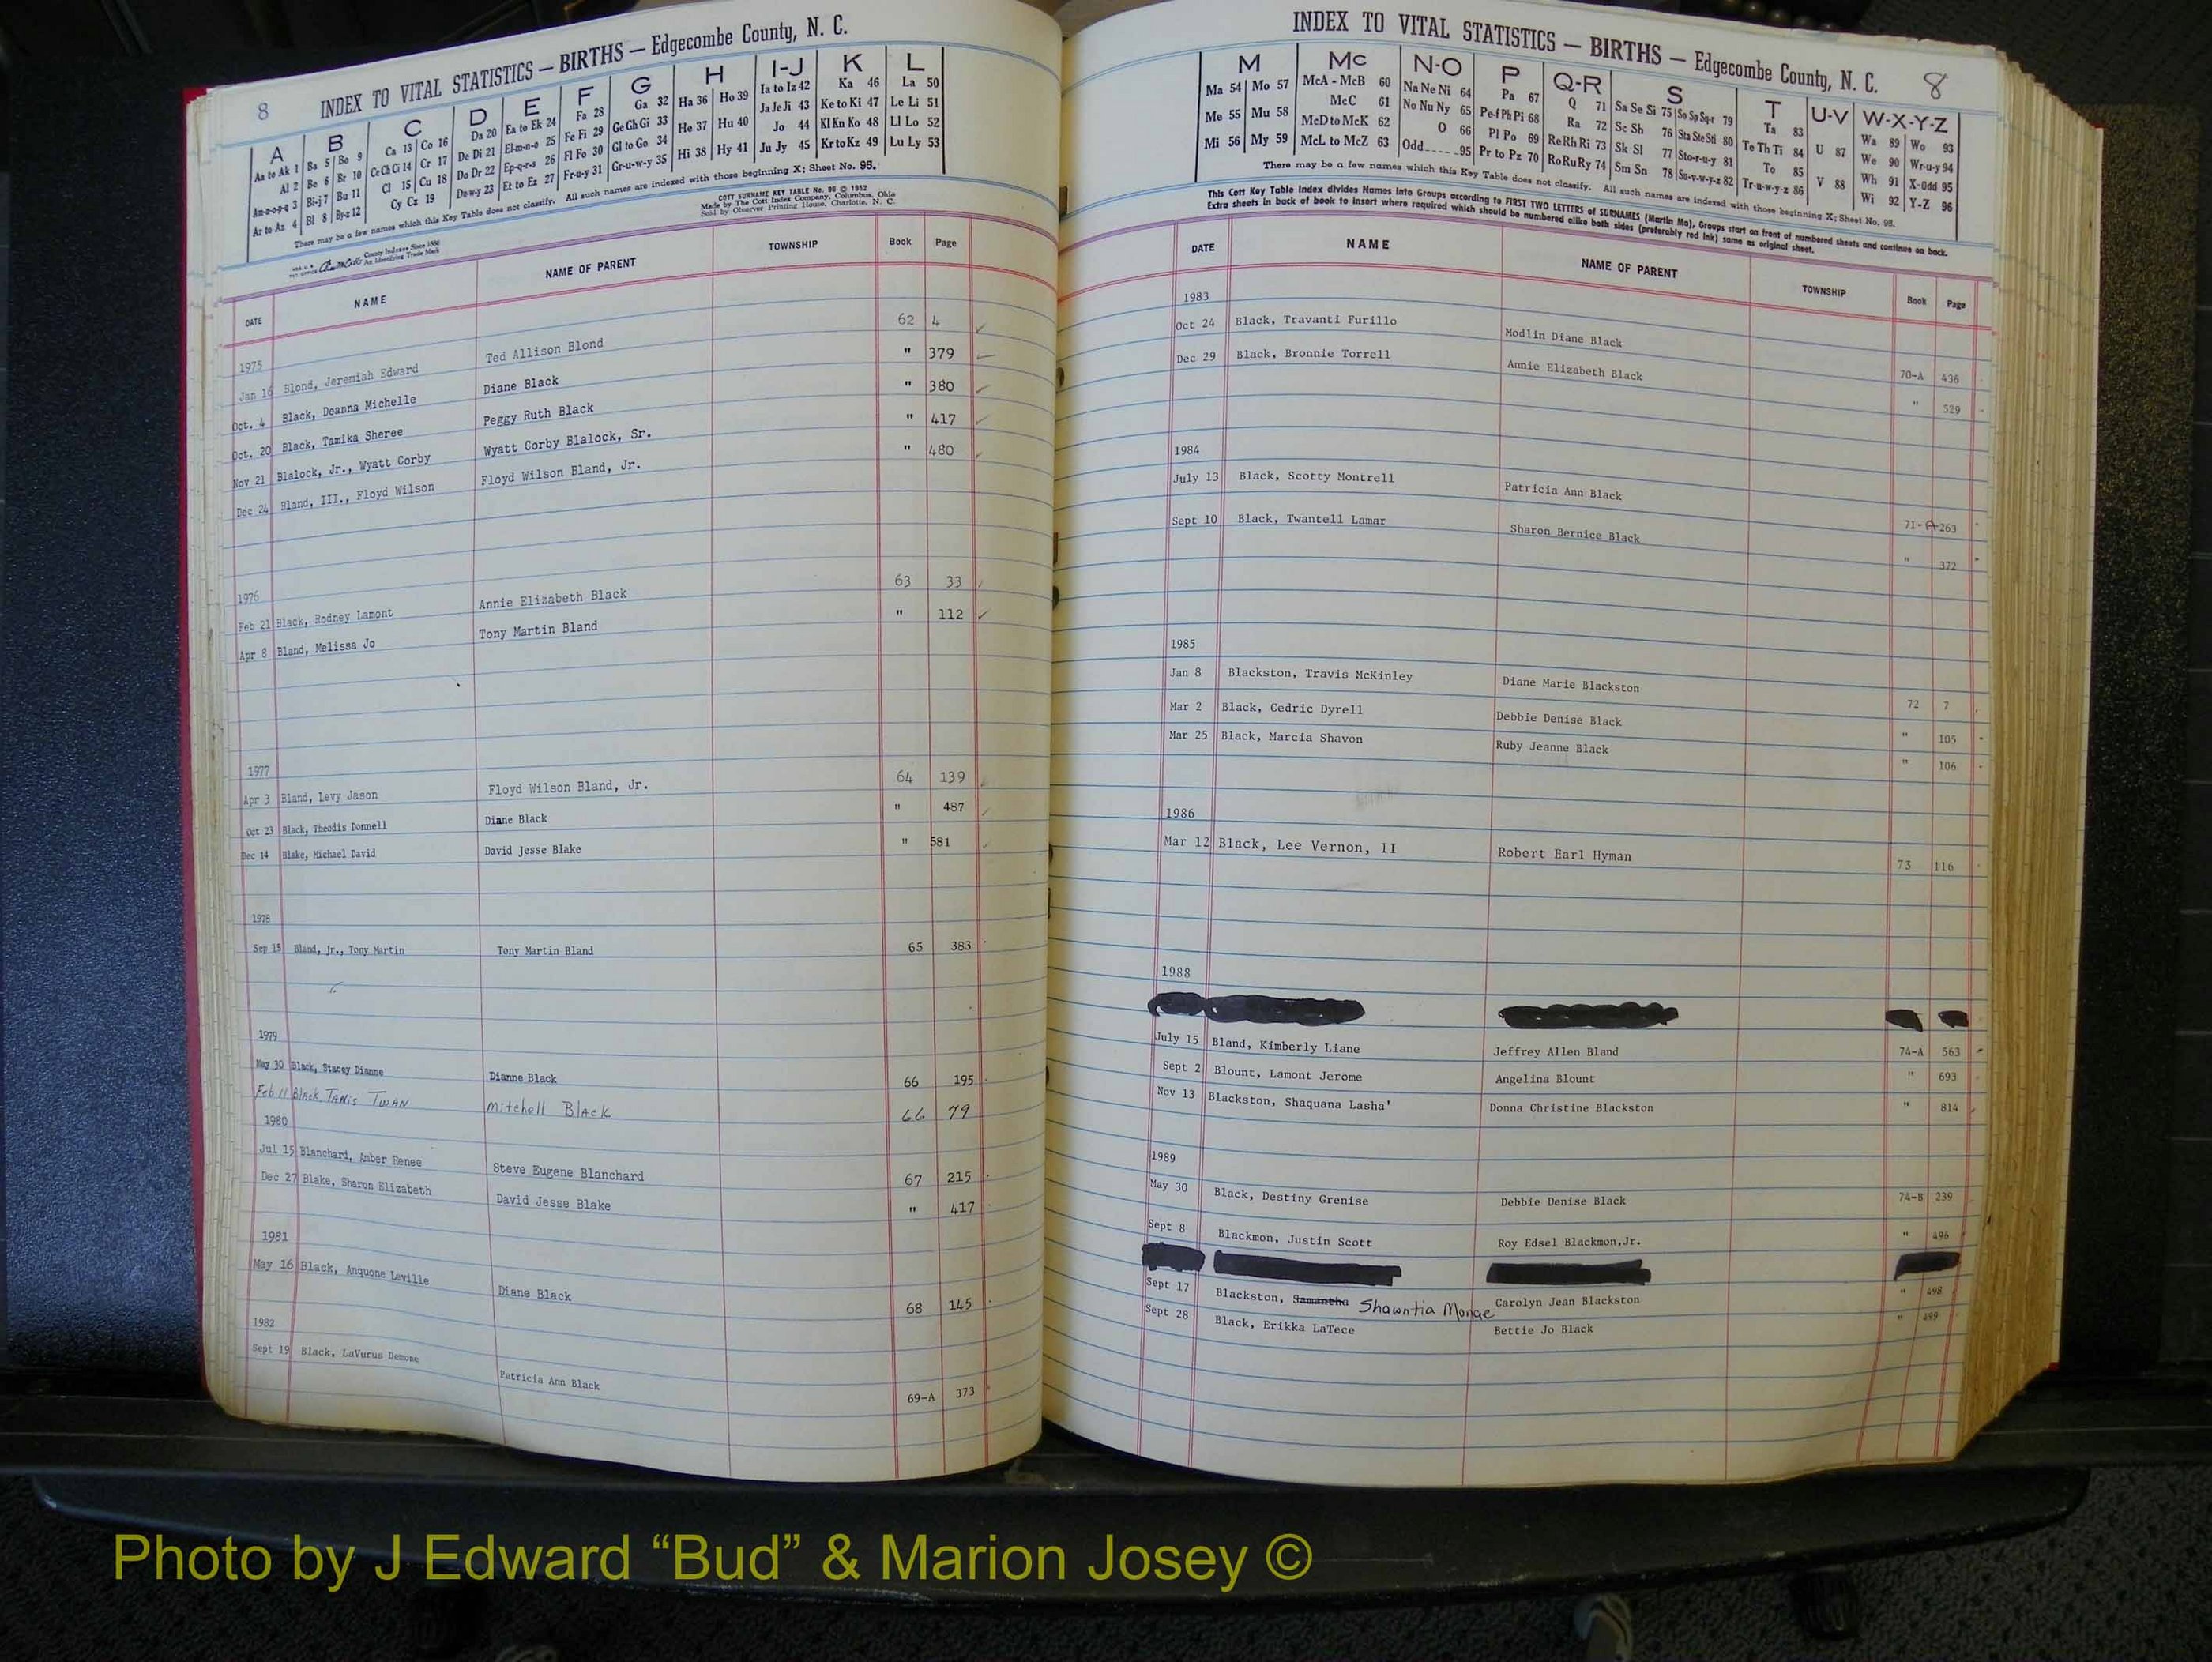 8 INDEX TO VITAL STATISTICS — BIRTHS — Edgecombe County, N. C.
A B C D E F G H I-J K L
Aa to Ak 1 Ba 5 Bo 9 Ca 13 Co 16 Da 20 Ea to Ek 24 Fa 28 Ga 32 Ha 36 Ho 39 Ia to Iz 42 Ka 46 La 50
Al 2 Be 6 Br 10 Ce Ch Ci 14 Cr 17 De Di 21 El-m-n-o 25 Fe Fi 29 Ge Gh Gi 33 He 37 Hu 40 Ja Je Ji 43 Ke to Ki 47 Le Li 51
Am-n-o-p-q 3 Bi-j 7 Bu 11 Cl 15 Cu 18 Do Dr 22 Ep-q-r-s 26 Fl Fo 30 Gl to Go 34 Hi 38 Hy 41 Jo 44 Kl Kn Ko 48 Ll Lo 52
Ar to Az 4 Bl 8 By-z 12 Cy Cz 19 Du-w-y 23 Et to Ez 27 Fr-u-y 31 Gr-u-w-y 35 Ju Jy 45 Kr to Kz 49 Lu Ly 53
There may be a few names which this Key Table does not classify. All such names are indexed with those beginning X; Sheet No. 95.
COTT SURNAME KEY TABLE No. 96 © 1952
Made by The Cott Index Company, Columbus, Ohio
Sold by Observer Printing House, Charlotte, N. C.
County Indexes Since 1888
An Identifying Trade Mark
DATE NAME NAME OF PARENT TOWNSHIP Book Page
1975
Jan 16 Blond, Jeremiah Edward Ted Allison Blond 62 4
Oct. 4 Black, Deanna Michelle Diane Black " 379
Oct. 20 Black, Tamika Sheree Peggy Ruth Black " 380
Nov 21 Blalock, Jr., Wyatt Corby Wyatt Corby Blalock, Sr. " 417
Dec 24 Bland, III., Floyd Wilson Floyd Wilson Bland, Jr. " 480
1976
Feb 21 Black, Rodney Lamont Annie Elizabeth Black 63 33
Apr 8 Bland, Melissa Jo Tony Martin Bland " 112
1977
Apr 3 Bland, Levy Jason Floyd Wilson Bland, Jr. 64 139
Oct 23 Black, Theodis Donnell Diane Black " 487
Dec 14 Blake, Michael David David Jesse Blake " 581
1978
Sep 15 Bland, Jr., Tony Martin Tony Martin Bland 65 383
1979
May 30 Black, Stacey Dianne Dianne Black 66 195
Feb 11 Black, TANis TWAN Mitchell Black 66 79
1980
Jul 15 Blanchard, Amber Renee Steve Eugene Blanchard 67 215
Dec 27 Blake, Sharon Elizabeth David Jesse Blake " 417
1981
May 16 Black, Anquone Leville Diane Black 68 145
1982
Sept 19 Black, LaVurus Demone Patricia Ann Black 69-A 373
INDEX TO VITAL STATISTICS — BIRTHS — Edgecombe County, N. C. 8
M Mc N-O P Q-R S T U-V W-X-Y-Z
Ma 54 Mo 57 McA - McB 60 Na Ne Ni 64 Pa 67 Q 71 Sa Se Si 75 So Sp Sq-r 79 Ta 83 U 87 Wa 89 Wo 93
Me 55 Mu 58 McC 61 No Nu Ny 65 Pe-f Ph Pi 68 Ra 72 Sc Sh 76 Sta Ste Sti 80 Te Th Ti 84 V 88 We 90 Wr-u-y 94
Mi 56 My 59 McD to McK 62 O 66 Pl Po 69 Re Rh Ri 73 Sk Sl 77 Sto-r-u-y 81 To 85 Wh 91 X-Odd 95
McL to McZ 63 Odd 95 Pr to Pz 70 Ro Ru Ry 74 Sm Sn 78 Su-v-w-y-z 82 Tr-u-w-y-z 86 Wi 92 Y-Z 96
There may be a few names which this Key Table does not classify. All such names are indexed with those beginning X; Sheet No. 95.
This Cott Key Table Index divides Names into Groups according to FIRST TWO LETTERS of SURNAMES (Martin Ma), Groups start on front of numbered sheets and continue on back.
Extra sheets in back of book to insert where required which should be numbered alike both sides (preferably red ink) same as original sheet.
DATE NAME NAME OF PARENT TOWNSHIP Book Page
1983
Oct 24 Black, Travanti Furillo Modlin Diane Black 70-A 436
Dec 29 Black, Bronnie Torrell Annie Elizabeth Black " 529
1984
July 13 Black, Scotty Montrell Patricia Ann Black 71-A 263
Sept 10 Black, Twantell Lamar Sharon Bernice Black " 372
1985
Jan 8 Blackston, Travis McKinley Diane Marie Blackston 72 7
Mar 2 Black, Cedric Dyrell Debbie Denise Black " 105
Mar 25 Black, Marcia Shavon Ruby Jeanne Black " 106
1986
Mar 12 Black, Lee Vernon, II Robert Earl Hyman 73 116
1988
July 15 Bland, Kimberly Liane Jeffrey Allen Bland 74-A 563
Sept 2 Blount, Lamont Jerome Angelina Blount " 693
Nov 13 Blackston, Shaquana Lasha' Donna Christine Blackston " 814
1989
May 30 Black, Destiny Grenise Debbie Denise Black 74-B 239
Sept 8 Blackmon, Justin Scott Roy Edsel Blackmon,Jr. " 496
Sept 17 Blackston, Samantha Shawntia Monae Carolyn Jean Blackston " 498
Sept 28 Black, Erikka LaTece Bettie Jo Black " 499
Photo by J Edward “Bud” & Marion Josey ©